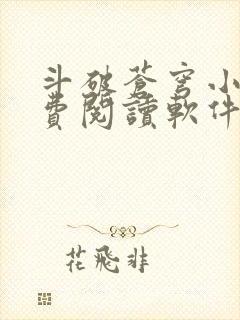 斗破蒼穹小
費閱讀軟件
花飛非